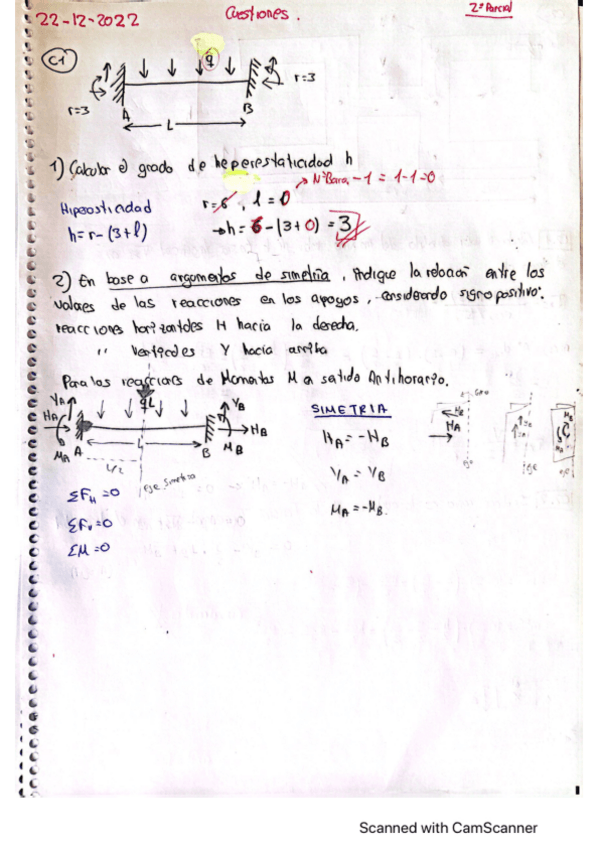 22-12-2022 Cuestiones. 2º Parcial
C1
q
r=3
r=3
A B
L
1) Calcular el grado de heperestaticidad h
Nº Barra - 1 = 1-1=0
Hiperosticidad r=6, l=0
h=r-(3+l) → h= 6-(3+0) = 3
2) En base a argumentos de simetría, Indique la relación entre los
valores de las reacciones en los apoyos, considerando signo positivo:
reacciones horizontales H hacia la derecha.
" Verticales Y hacia arriba
Para las reacciones de Momentos M en satido Antihorario.
VA qL VB
HA HB
MA A L B MB
L/2
eje simetria
SIMETRIA
HA = -HB
VA = VB
MA = -MB.
HB
HA
eje
MB
MA
ΣFH=0
ΣFV=0
ΣM=0
Scanned with CamScanner